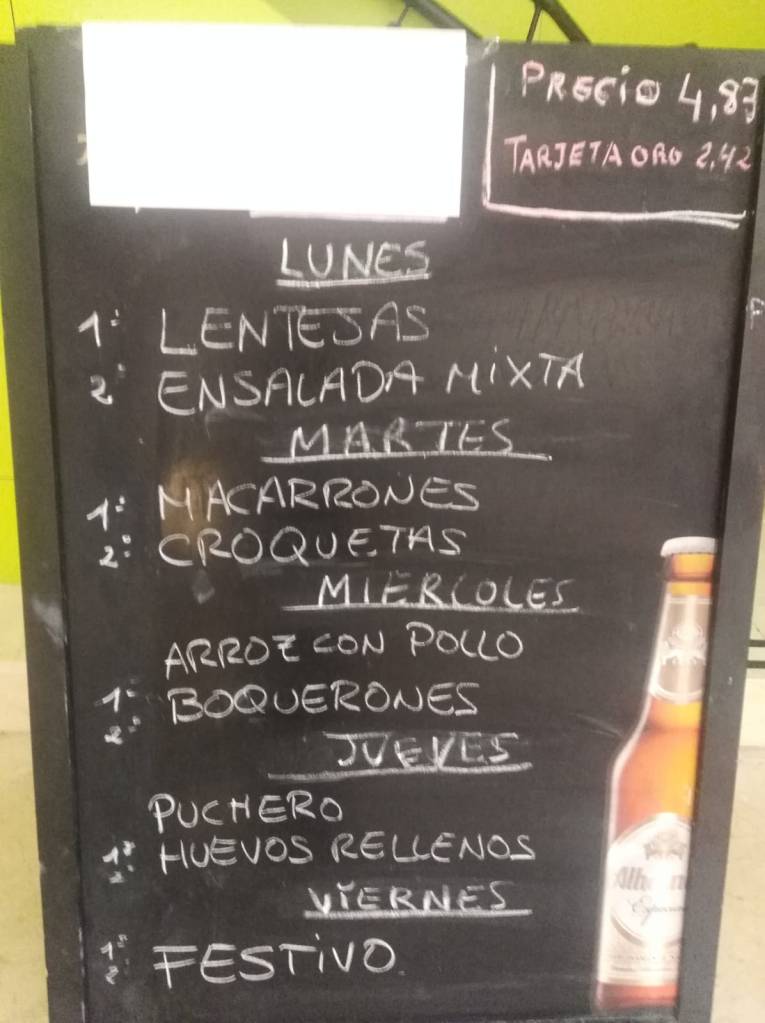 PRECIO 4,83
TARJETA ORO 2,42
LUNES
1º LENTEJAS
2º ENSALADA MIXTA
MARTES
1º MACARRONES
2º CROQUETAS
MIERCOLES
ARROZ CON POLLO
1º BOQUERONES
2º
JUEVES
PUCHERO
1º HUEVOS RELLENOS
2º
VIERNES
1º
2º FESTIVO
Especial